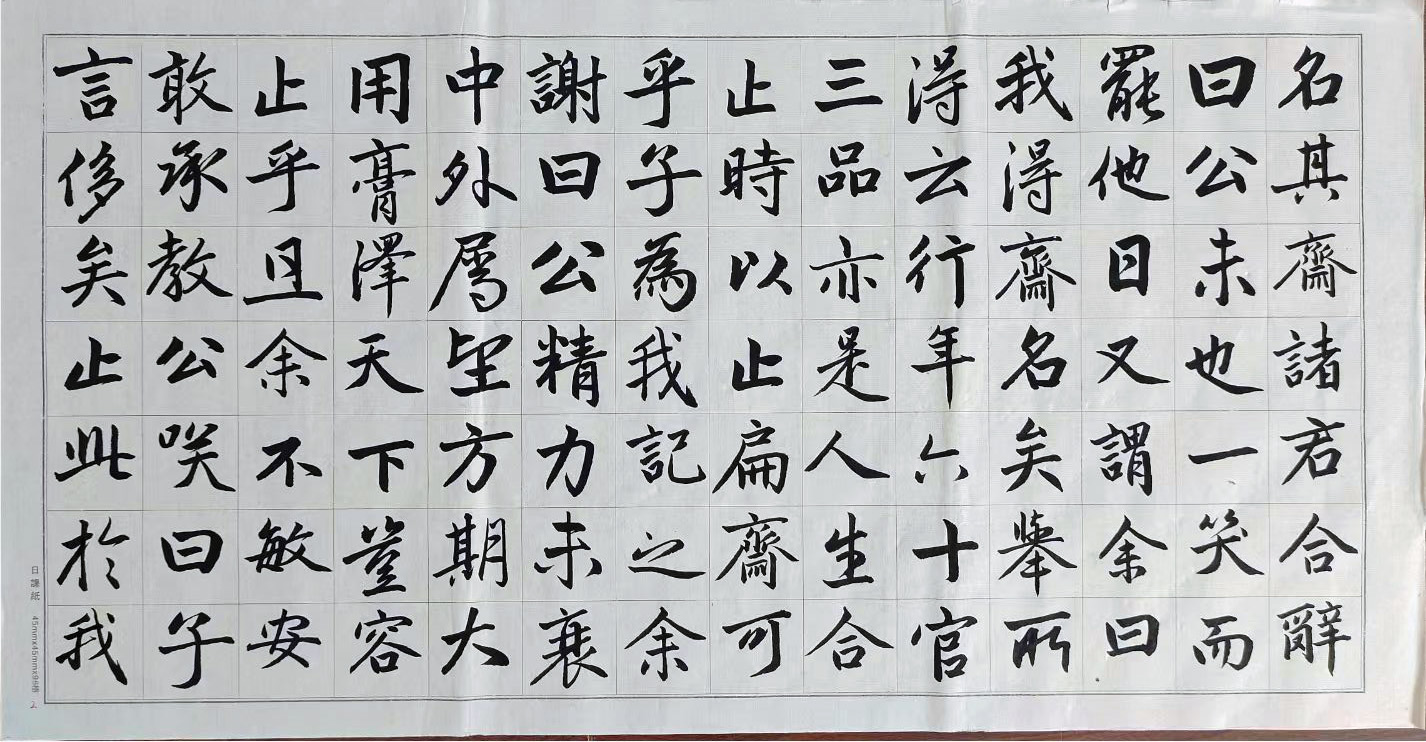 名其齋諸君合辭
曰公未也一笑而
罷他日又謂余曰
我得齋名矣舉所
得云行年六十官
三品亦是人生合
止時以止扁齋可
乎子為我記之余
謝曰公精力未衰
中外屬望方期大
用膏澤天下豈容
止乎且余不敏安
敢承教公咲曰子
言侈矣止此於我
日課紙 45mmx45mmx98格